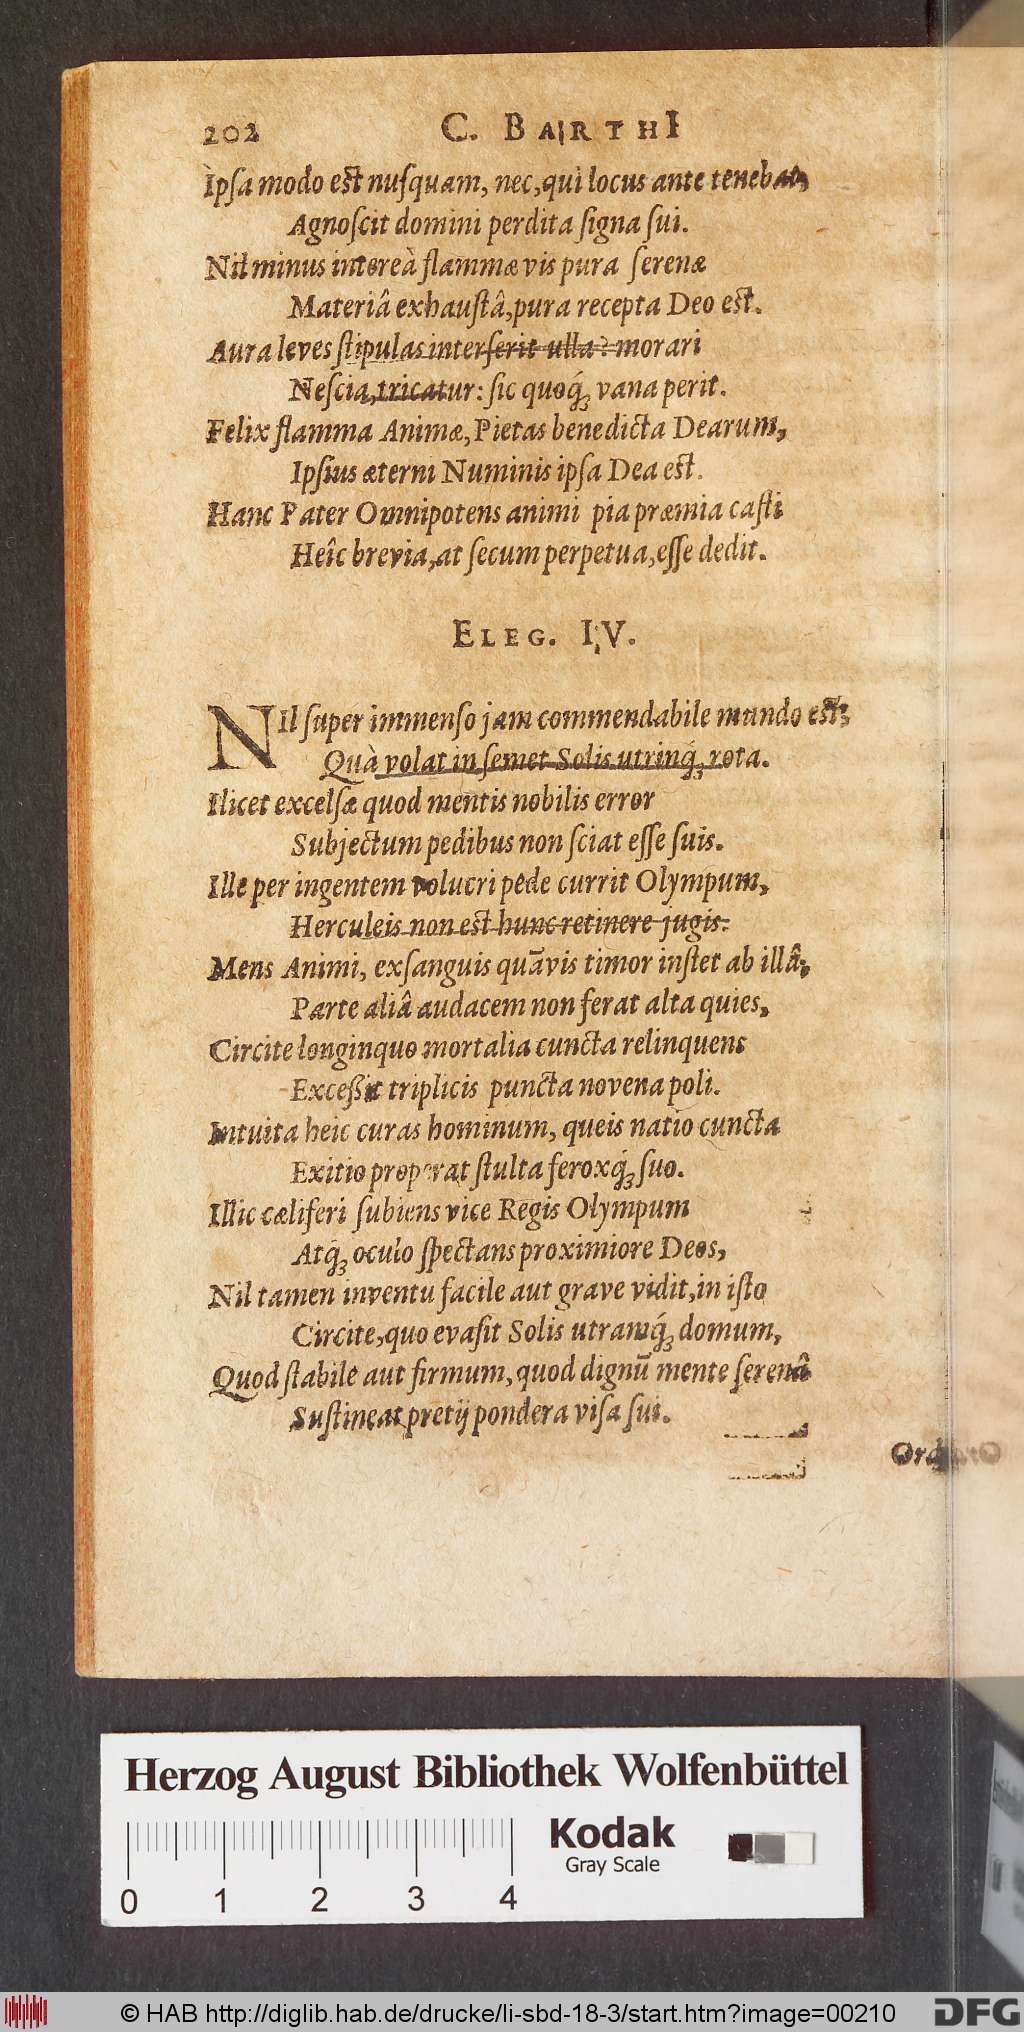 202 C. BARTHI
Ipſa modo eſt nuſquam, nec, qui locus ante tenebat,
Agnoſcit domini perdita ſigna ſui.
Nil minus intereà flammæ vis pura ſerenæ
Materiâ exhauſtâ, pura recepta Deo eſt.
Aura leves ſtipulas interſerit ulla? morari
Neſcia, tricatur: ſic quoq́ꝫ vana perit.
Felix flamma Animæ, Pietas benedicta Dearum,
Ipſius æterni Numinis ipſa Dea eſt.
Hanc Pater Omnipotens animi pia præmia caſti
Heîc brevia, at ſecum perpetua, eſſe dedit.
ELEG. IV.
NIl ſuper immenſo jam commendabile mundo eſt;
Quà volat in ſemet Solis utrinq́ꝫ rota.
Ilicet excelſæ quod mentis nobilis error
Subjectum pedibus non ſciat eſſe ſuis.
Ille per ingentem volucri pede currit Olympum,
Herculeis non eſt hunc retinere jugis:
Mens Animi, exſanguis quāvis timor inſtet ab illâ,
Parte aliâ audacem non ferat alta quies,
Circite longinquo mortalia cuncta relinquens
Exceßit triplicis puncta novena poli.
Intuita heic curas hominum, queis natio cuncta
Exitio properat ſtulta feroxq́ꝫ ſuo.
Illic cæliferi ſubiens vice Regis Olympum
Atq́ꝫ oculo ſpectans proximiore Deos,
Nil tamen inventu facile aut grave vidit, in iſto
Circite, quo evaſit Solis utramq́ꝫ domum,
Quod ſtabile aut firmum, quod dignū mente ſerenâ
Suſtineat pretij pondera viſa ſui.
Herzog August Bibliothek Wolfenbüttel
Kodak
Gray Scale
0 1 2 3 4
© HAB http://diglib.hab.de/drucke/li-sbd-18-3/start.htm?image=00210 DFG